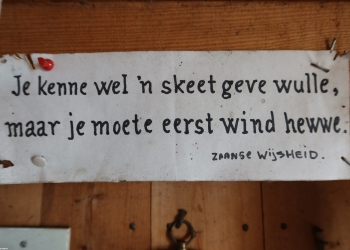 Je kenne wel 'n skeet geve wulle,
maar je moete eerst wind hewwe.
ZAANSE WIJSHEID.